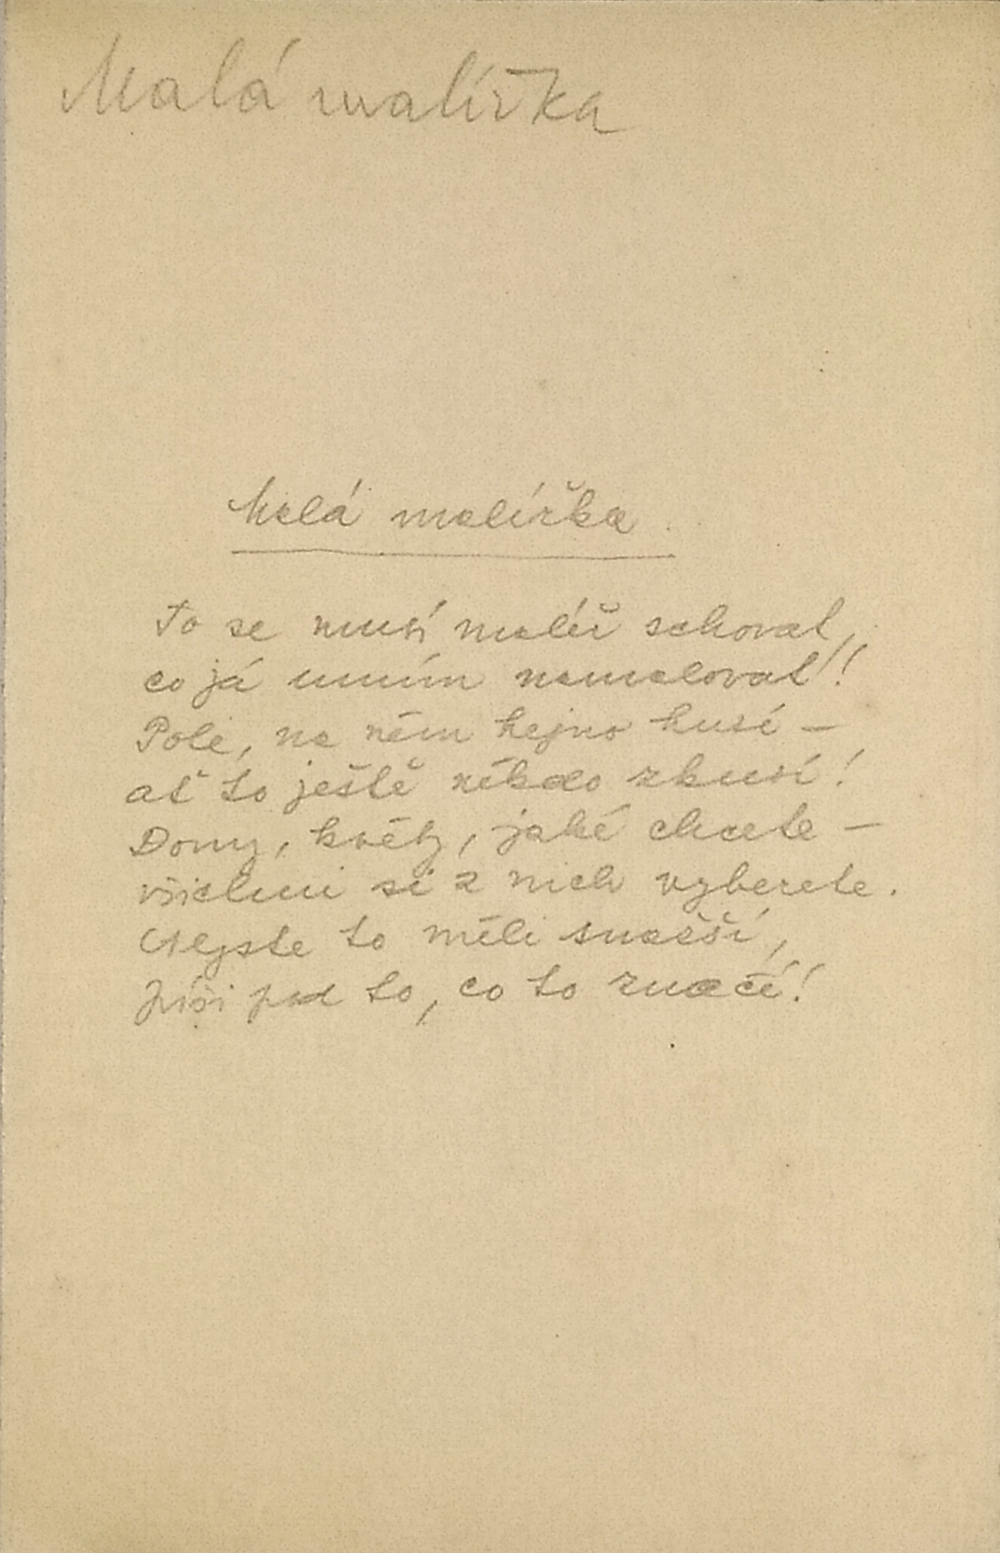 Malá malířka
Malá malířka.
To se musí malíř schovat,
co já umím namalovat!
Pole, na něm hejno husí –
ať to ještě někdo zkusí!
Domy, květy, jaké chcete –
všichni si z nich vyberete.
Abyste to měli snažší,
píši pod to, co to značí!